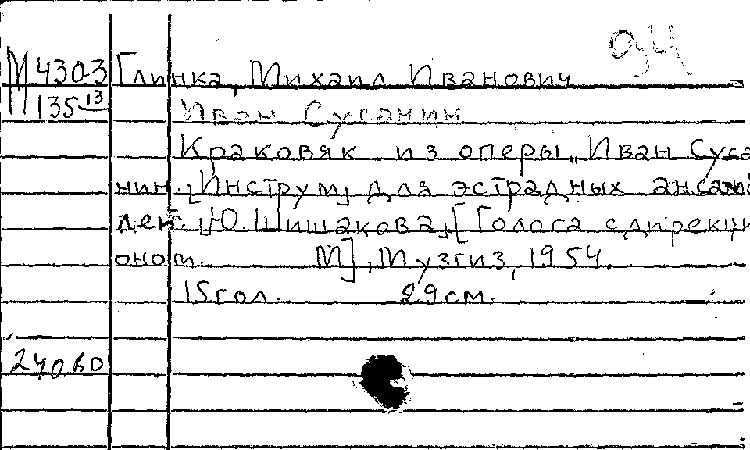 94
М 430-3 Глинка, Михаил Иванович
М 135 13 Иван Сусанин
Краковяк из оперы „Иван Суса
нин. [Инструм] для эстрадных ансамб
лей. [Ю. Шишакова]. [Голоса с дирекци
оном. М], Музгиз, 1954.
15 гол. 29 см.